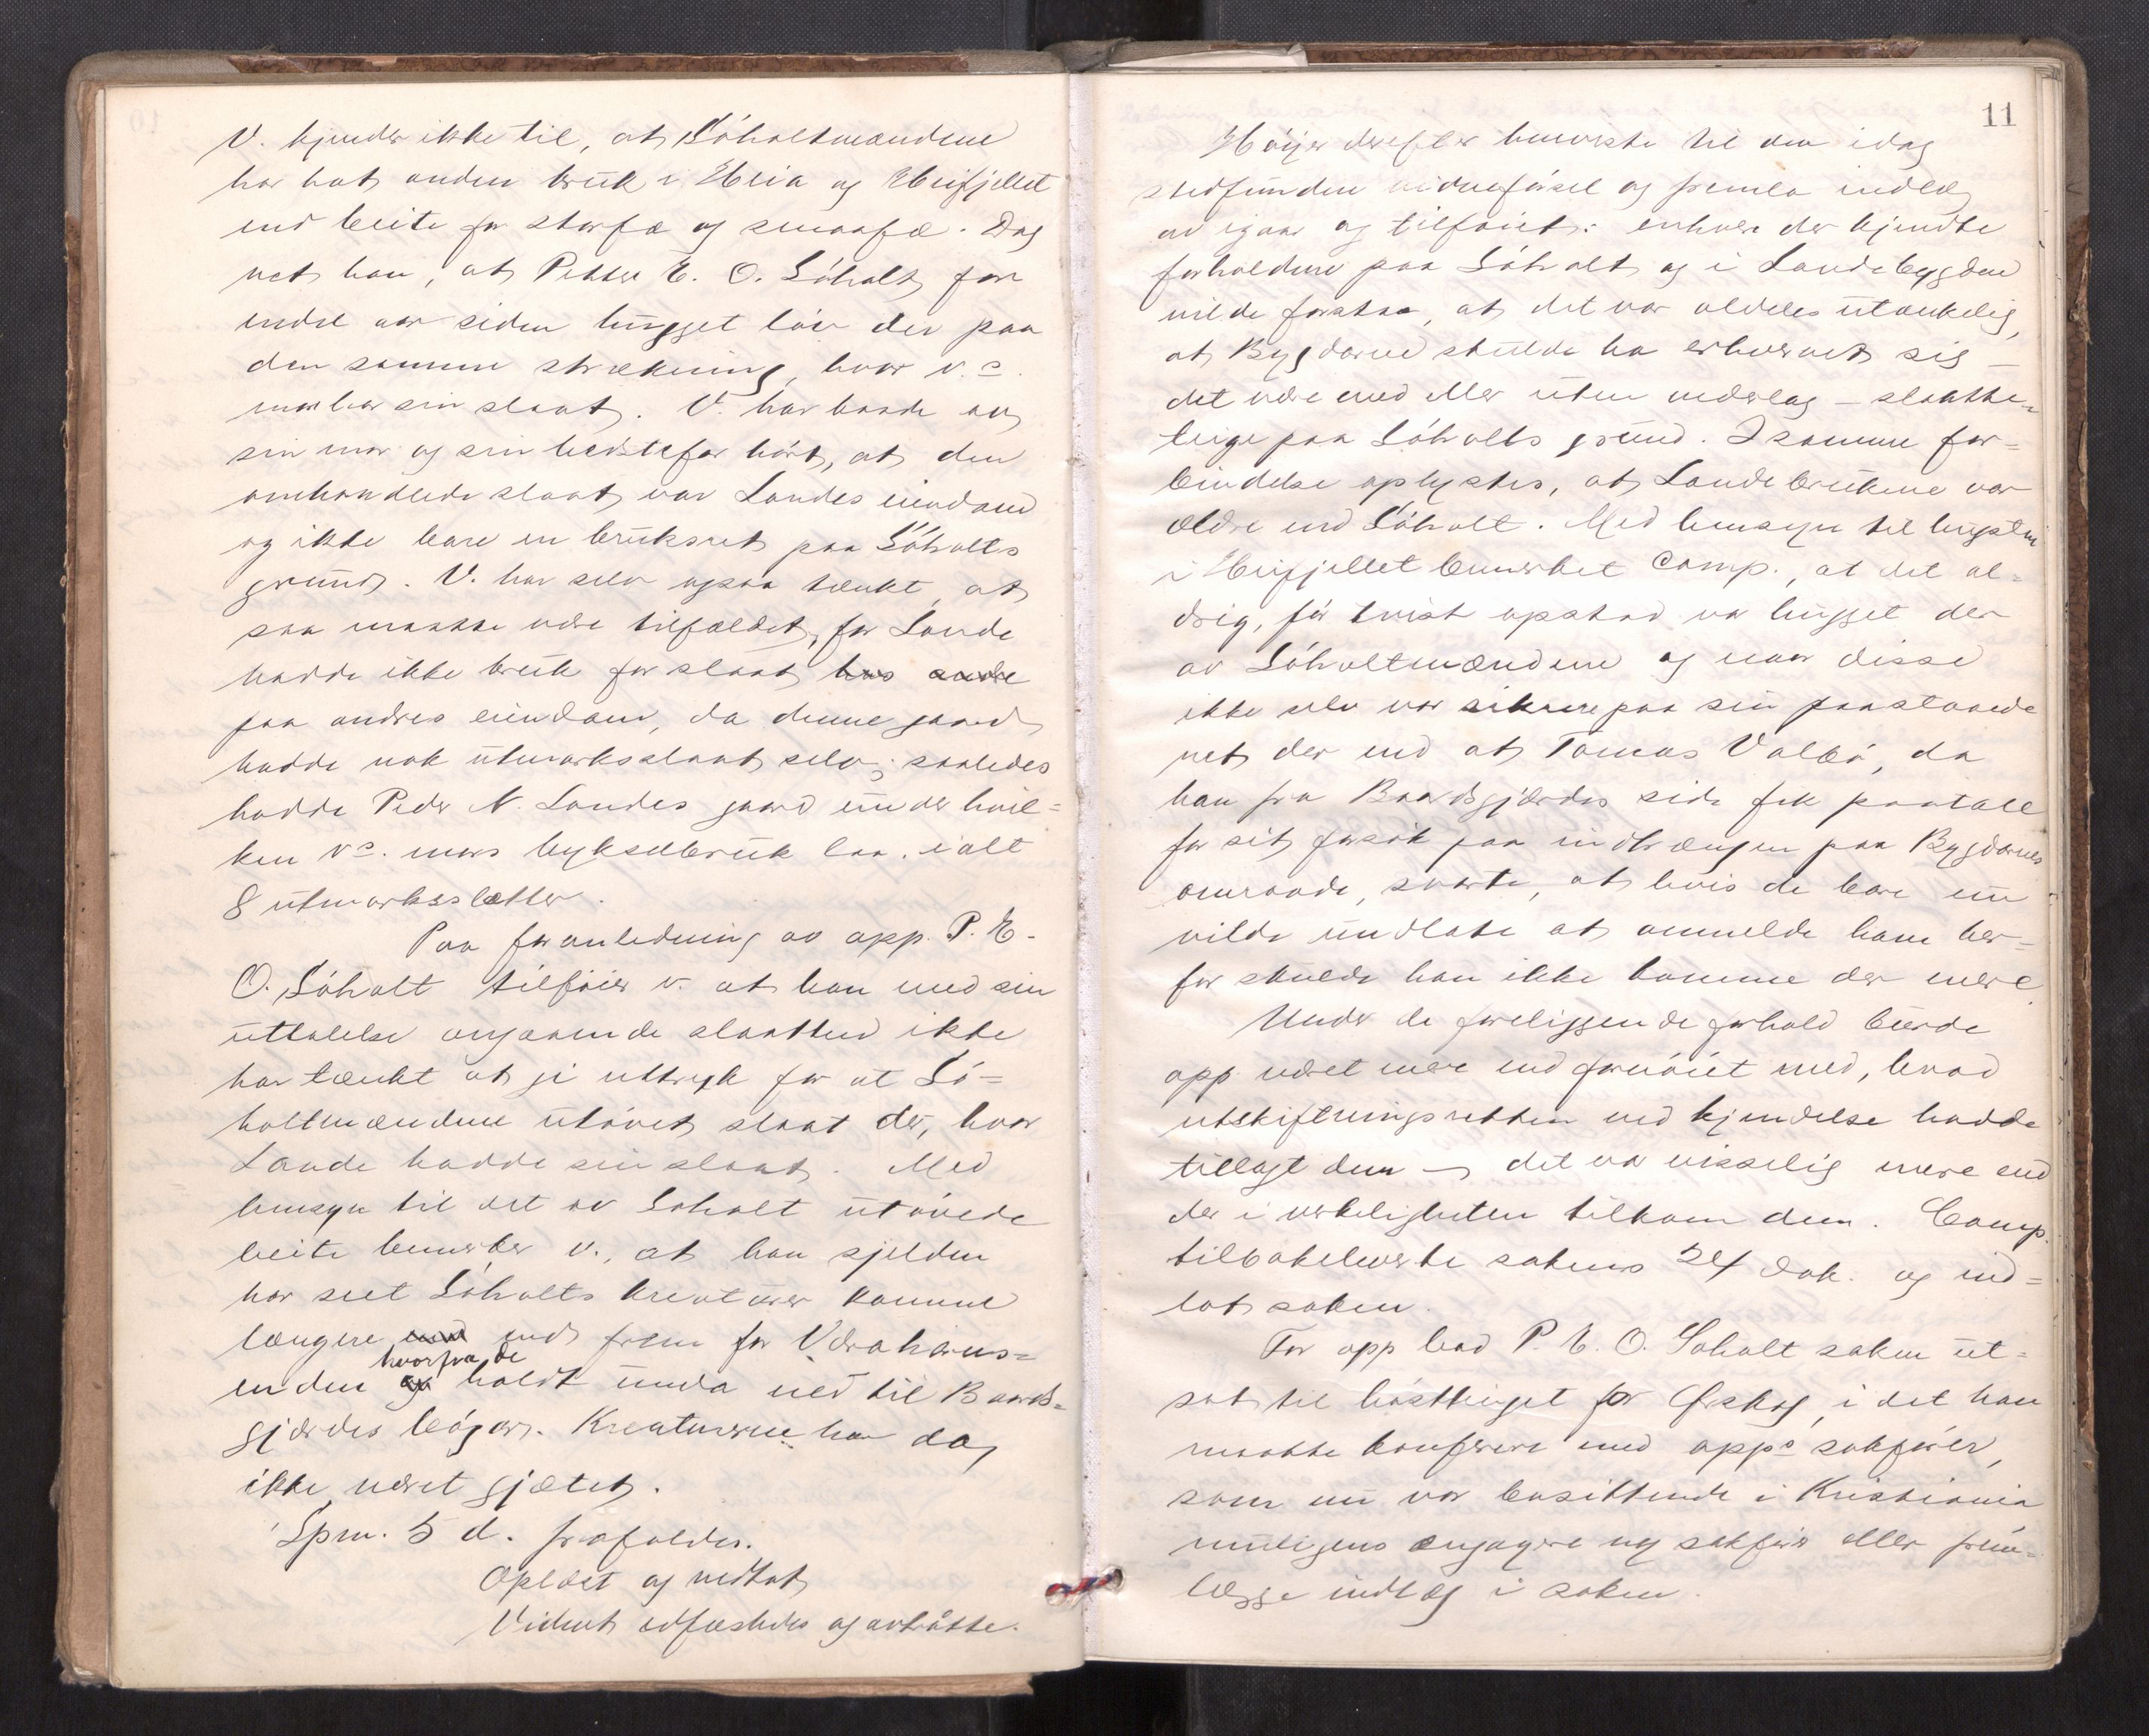 V. kjender ikke til, at Söholtmændene
har hat anden bruk i Heia og Heifjellet
end beite for storfæ og smaafæ. Dog
vet han, at Petter E. O. Söholt for
endel aar siden hugget löv der paa
den samme strækning, hvor v.s
mor har sin slaat. V. har baade av
sin mor og sin bedstefar hört, at den
omhandlede slaat var Landes eiendom
og ikke bare en bruksret paa Söholts
grund. V. har selv ogsaa tænkt, at
saa maatte være tilfældet, for Lande
hadde ikke bruk for slaat hos andre
paa andres eiendom, da denne gaard
hadde nok utmarksslaat selv; saaledes
hadde Peder N. Landes gaard under hvil=
ken v.s mors bykselbruk laa, ialt
8 utmarksslætter.
Paa foranledning av app. P. E.
O. Söholt tilföier v. at han med sin
uttalelse angaaende slaatten ikke
har tænkt at gi uttryk for at Sö=
holtmændene utövet slaat der, hvor
Lande hadde sin slaat. Med
hensyn til det av Söholt utövede
beite bemerker v., at han sjelden
har seet Söholts kreaturer komme
længere end frem for
enden hvorfra de holdt unda ned til Baards=
gjærdes bögar. Kreaturene har dog
ikke været gjætet.
Spm. 5 d. frafaldes.
Oplæst og vedtat
Vidnet edfæstedes og avtraatte.
11
Höyer derefter henviste til den idag
stedfundne vidneförsel og fremla indlæg
av igaar og tilföiet: enhver der kjendte
forholdene paa Söholt og i Landebygden
vilde forstaa, at det var aldeles utænkelig,
at Bygdarne skulde ha erhvervet sig –
det være med eller uten vederlag – slaatte=
teiger paa Söholts grund. I samme for=
bindelse oplystes, at Landebrukene var
ældre end Söholt. Med hensyn til hugsten
i Heifjellet bemerket Comp., at det al=
drig, för tvist opstod var hugget der
av Söholtmændene og naar disse
ikke selv var sikrere paa sin paastaaede
ret der end at Tomas Valbö, da
han fra Baardsgjærdes side fik paatale
for sit forsök paa indtrængen paa Bygdarnes
omraade, svarte, at hvis de bare nu
vilde undlate at anmelde ham her=
for skulde han ikke komme der mere.
Under de foreliggende forhold burde
app. været mere end fornöiet med, hvad
utskiftningsretten ved kjendelse hadde
tillagt dem – det var visselig mere end
der i virkeligheten tilkom dem. Comp.
tilbakeleverte sakens 24 dok. og ind=
lot saken.
For app bad P. E. O. Söholt saken ut=
sat til hösttinget for Ørskog, i det han
maatte konferere med app.s sakförer,
som nu var bosittende i Kristiania
muligens engagere ny sakförer eller frem=
lægge indlæg i saken.